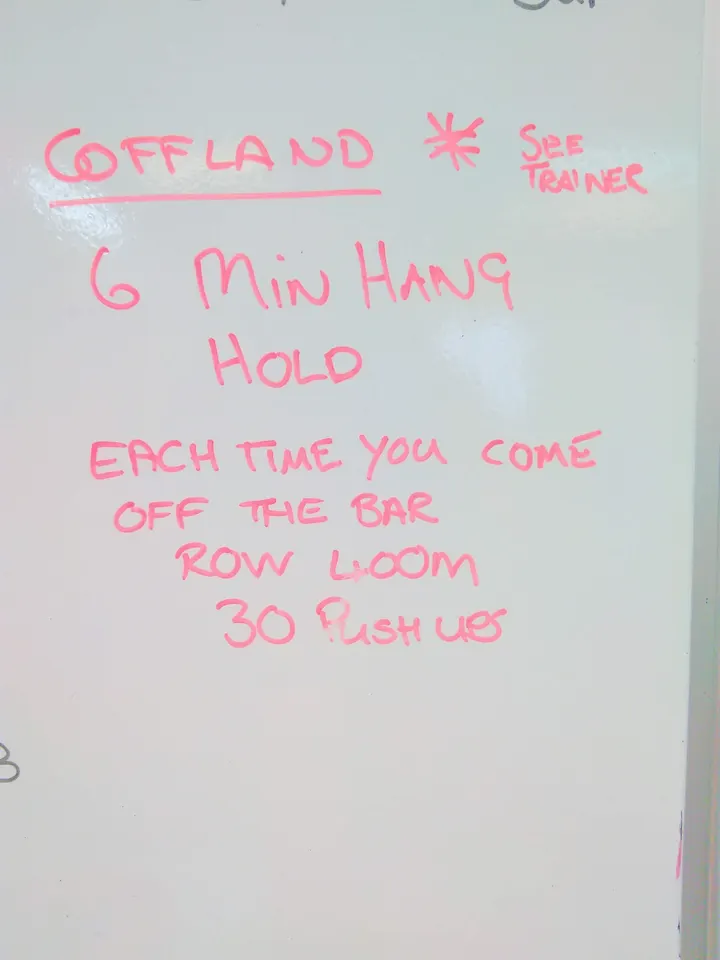 COFFLAND * SEE
TRAINER
6 MIN HANG
HOLD
EACH TIME YOU COME
OFF THE BAR
ROW 400M
30 PUSH UPS